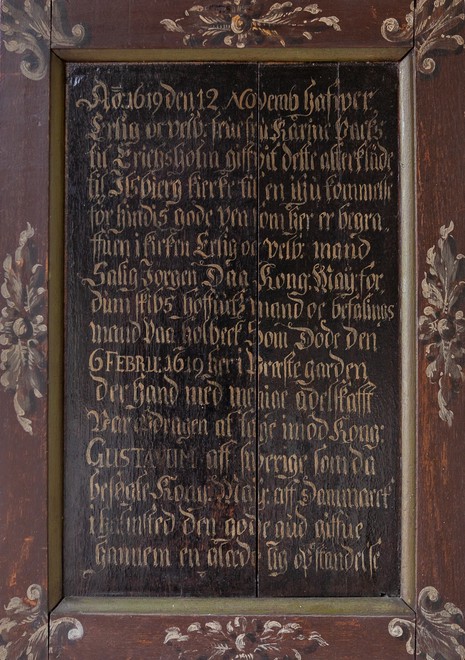 Aõ: 1619 den 12 Novemb hafwer
Erlig oc velb: frue fru Karine
til Eriegsholm giffvit dette alterklæde
til Ilsbierg kircke til en ihukommelse
for hindis gode ven som her er begra
ffuen i kircken Erlig oc velb: mand
Salig Jorgen Daa Kong: May: for
dum skibs hoffuitzmand oc befalings
mand paa Holbeck som Døde den
6 FEBRU: 1619 her i Præste garden
der hand med menige adelskafft
Var dragen at ligge imod Kong:
GUSTAVUM aff Sverige som da
besøgte Kong: May: aff Danmarck
i Halmsted den gode gud giffue
hannem en glædelig opstandelse